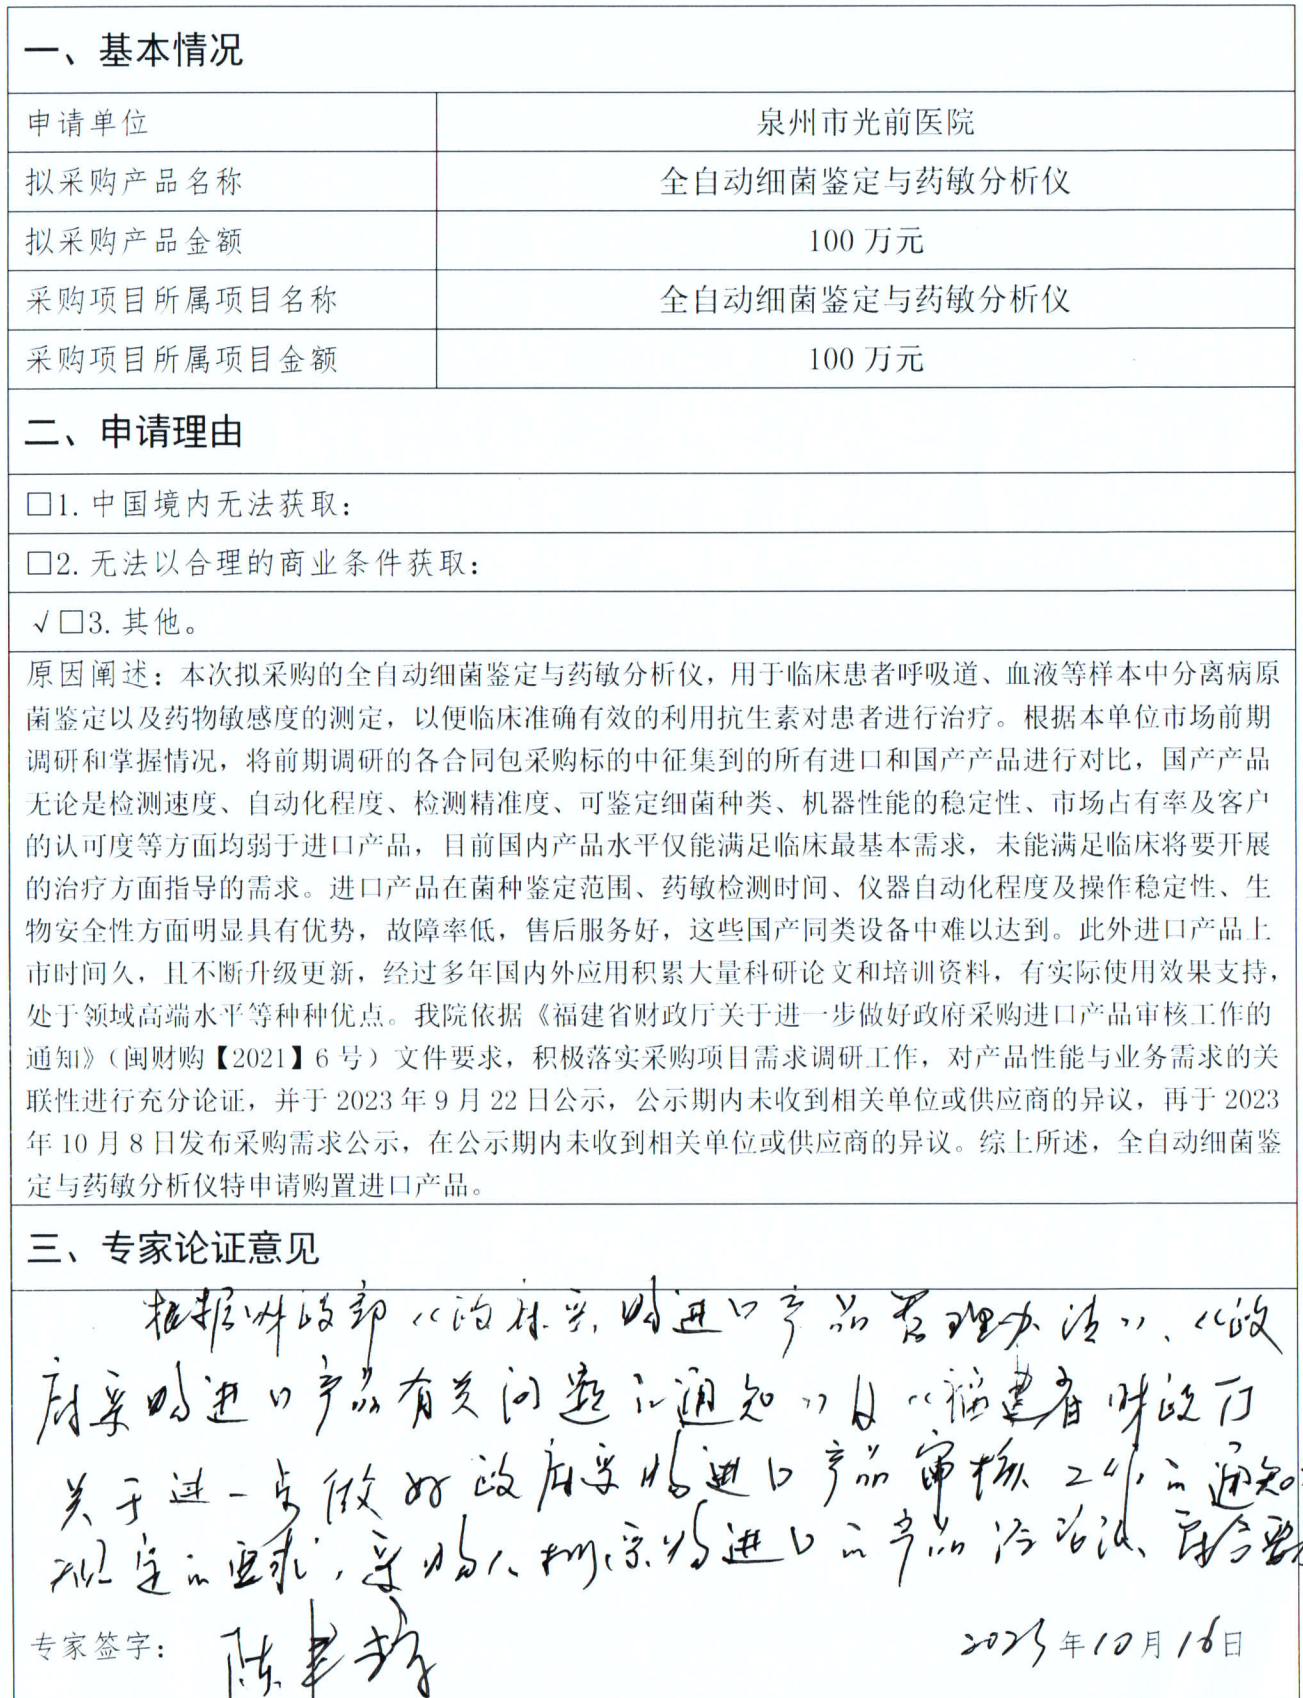 一、基本情况
申请单位 泉州市光前医院
拟采购产品名称 全自动细菌鉴定与药敏分析仪
拟采购产品金额 100 万元
采购项目所属项目名称 全自动细菌鉴定与药敏分析仪
采购项目所属项目金额 100 万元
二、申请理由
□1. 中国境内无法获取:
□2. 无法以合理的商业条件获取:
√□3. 其他。
原因阐述：本次拟采购的全自动细菌鉴定与药敏分析仪，用于临床患者呼吸道、血液等样本中分离病原
菌鉴定以及药物敏感度的测定，以便临床准确有效的利用抗生素对患者进行治疗。根据本单位市场前期
调研和掌握情况，将前期调研的各合同包采购标的中征集到的所有进口和国产产品进行对比，国产产品
无论是检测速度、自动化程度、检测精准度、可鉴定细菌种类、机器性能的稳定性、市场占有率及客户
的认可度等方面均弱于进口产品，目前国内产品水平仅能满足临床最基本需求，未能满足临床将要开展
的治疗方面指导的需求。进口产品在菌种鉴定范围、药敏检测时间、仪器自动化程度及操作稳定性、生
物安全性方面明显具有优势，故障率低，售后服务好，这些国产同类设备中难以达到。此外进口产品上
市时间久，且不断升级更新，经过多年国内外应用积累大量科研论文和培训资料，有实际使用效果支持，
处于领域高端水平等种种优点。我院依据《福建省财政厅关于进一步做好政府采购进口产品审核工作的
通知》（闽财购【2021】6 号）文件要求，积极落实采购项目需求调研工作，对产品性能与业务需求的关
联性进行充分论证，并于 2023 年 9 月 22 日公示，公示期内未收到相关单位或供应商的异议，再于 2023
年 10 月 8 日发布采购需求公示，在公示期内未收到相关单位或供应商的异议。综上所述，全自动细菌鉴
定与药敏分析仪特申请购置进口产品。
三、专家论证意见
根据财政部《政府采购进口产品管理办法》、《政
府采购进口产品有关问题的通知》及《福建省财政厅
关于进一步做好政府采购进口产品审核工作的通知
规定的要求，采购人拟采购进口的产品
专家签字： 陈 2023年10月16日